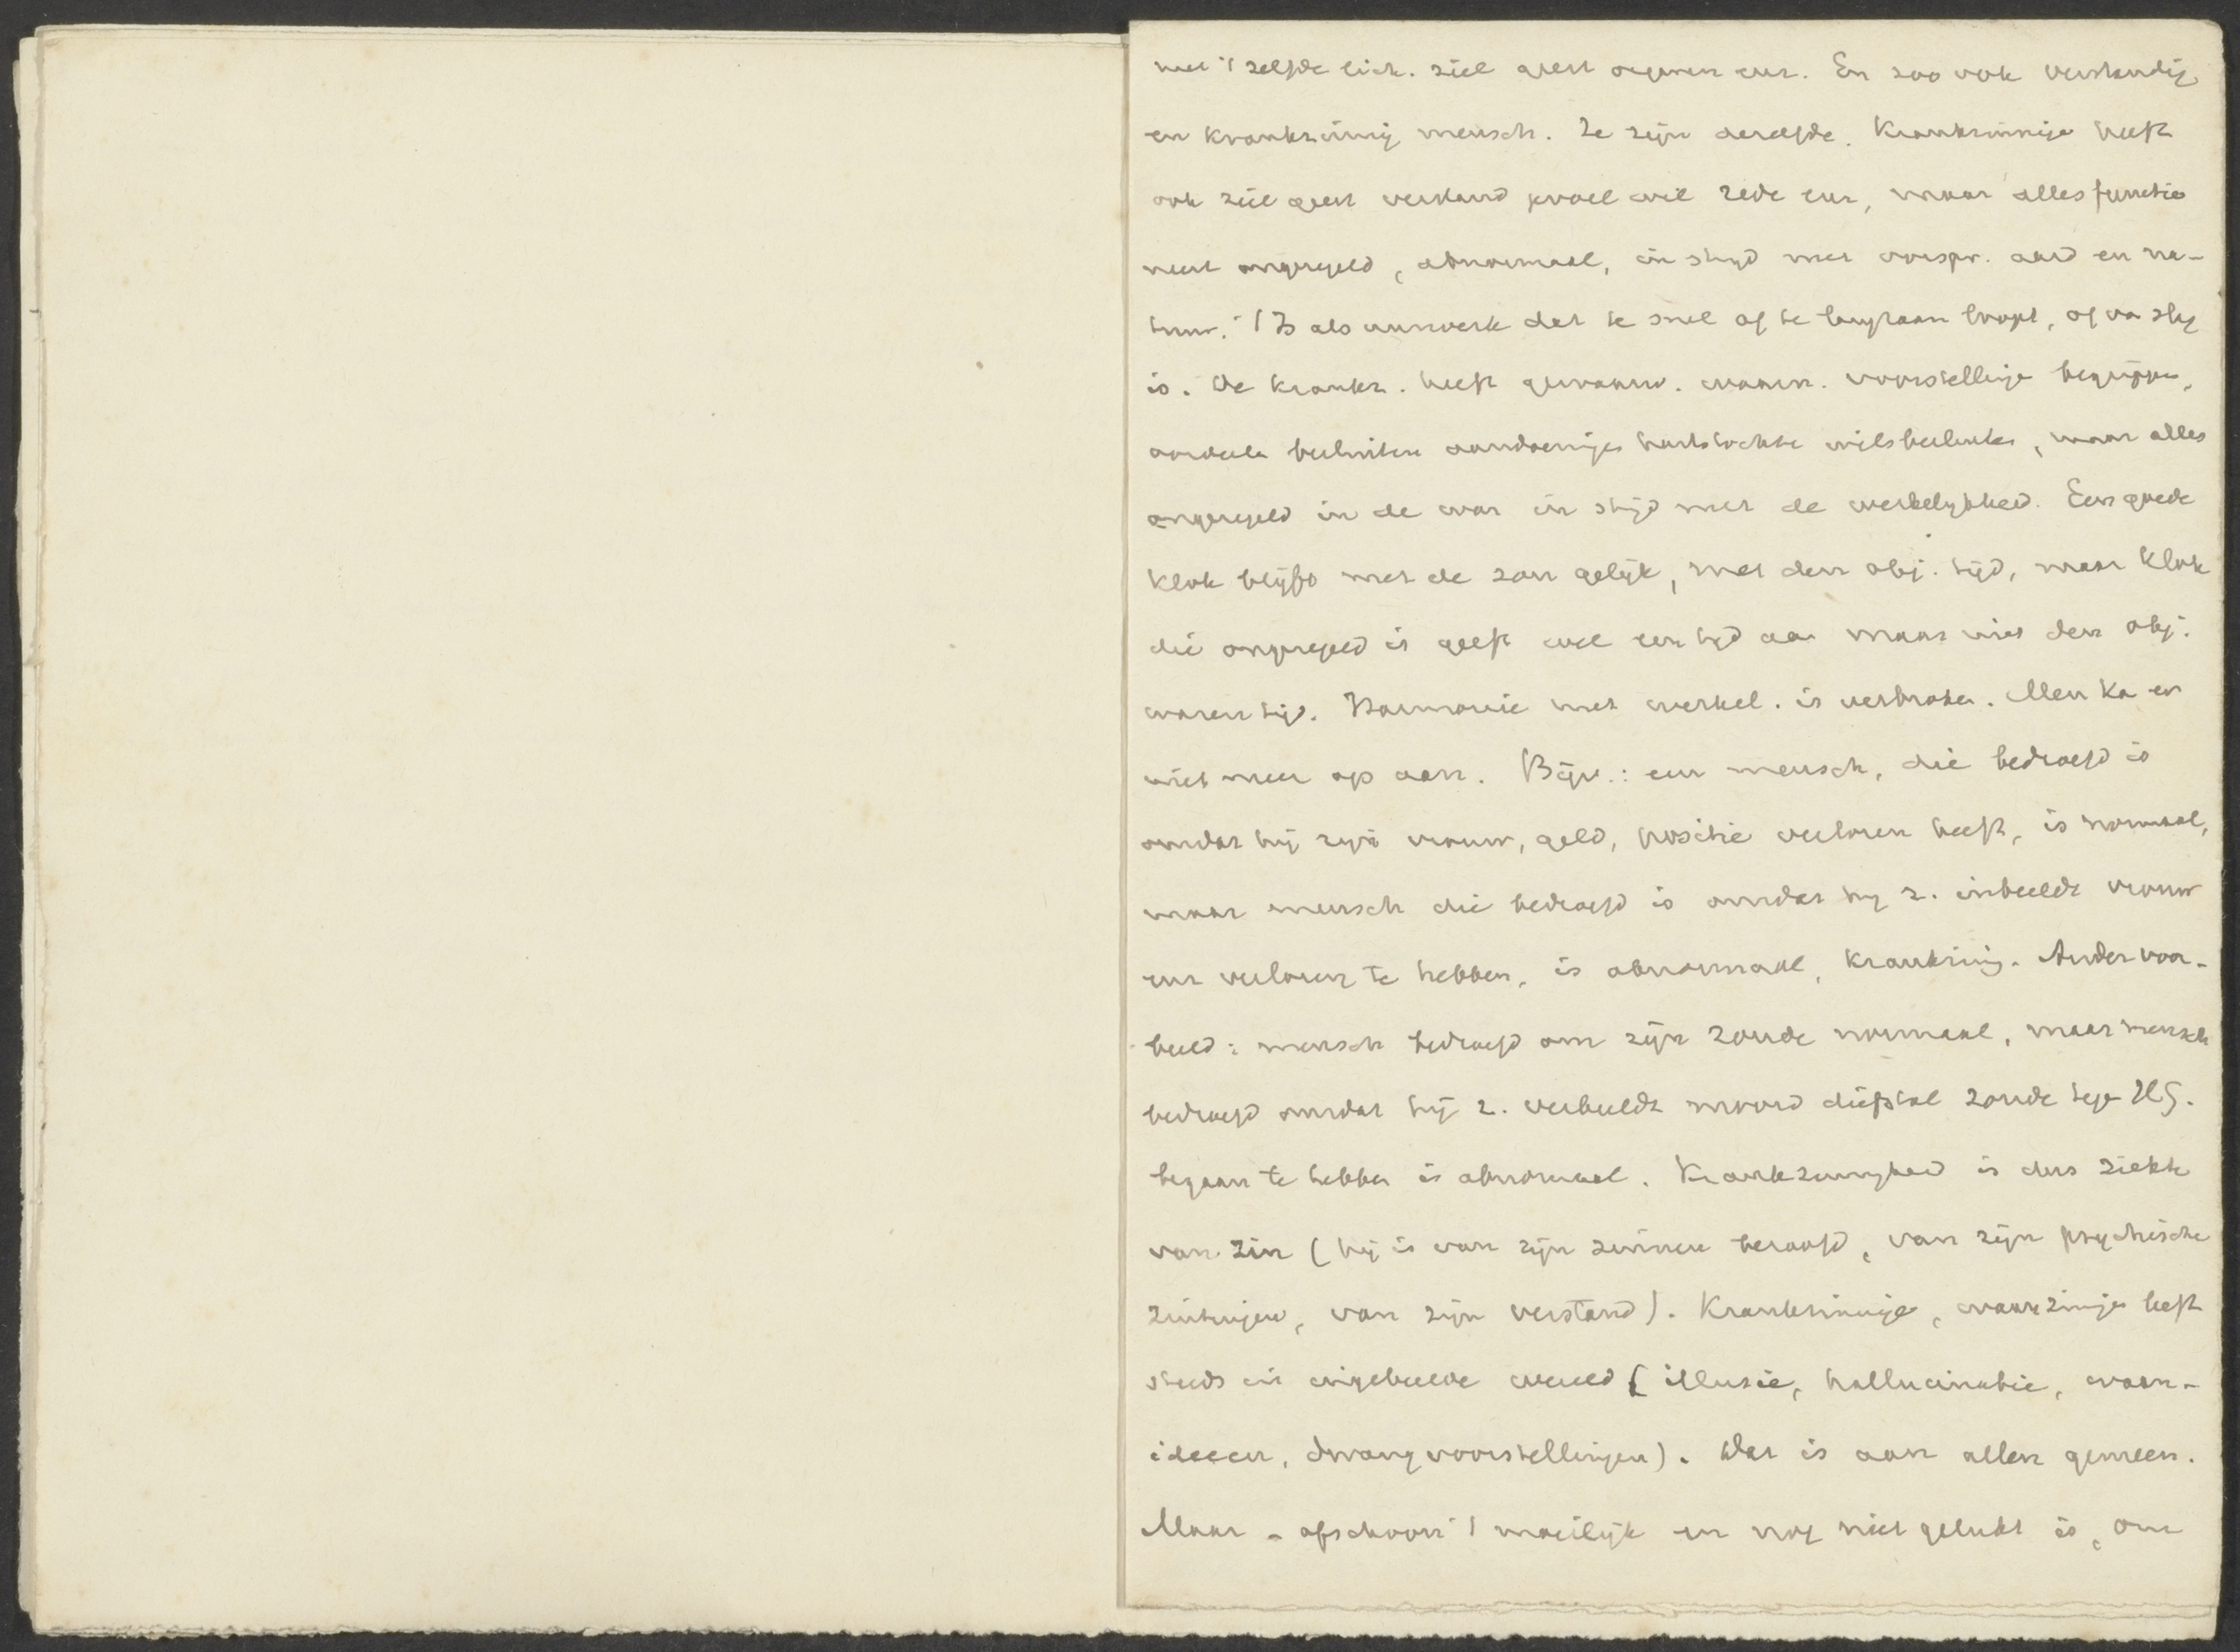 met 't zelfde lich. ziel geest organen enz. En zoo ook verstandig
en krankzinnig mensch. Ze zijn dezelfde. Krankzinnige heeft
ook ziel geest verstand gevoel wil rede enz, maar alles functio
neert ongeregeld, abnormaal, in strijd met oorspr. aard en na-
tuur. 't Is als uurwerk dat te snel of te langzaam loopt, of van slag
is. De krankz. heeft gewaarw. waarn. voorstellinge begrippen,
oordeele besluiten aandoeninge hartstochte wilsbesluite, maar alles
ongeregeld in de war in strijd met de werkelijkheid. Een goede
klok blijft met de zon gelijk, met den obj. tijd, maar klok
die ongeregeld is geeft wel een tijd aan maar niet den obj.
waren tijd. Harmonie met werkel. is verbroken. Men ka er
niet meer op aan. Bijv.: een mensch, die bedroefd is
omdat hij zijn vrouw, geld, positie verloren heeft, is normaal,
maar mensch die bedroefd is omdat hij z. inbeeldt vrouw
enz verloren te hebben, is abnormaal, krankzinnig. Ander voor-
beeld: mensch bedroefd om zijn zonde normaal, maar mensch
bedroefd omdat hij z. verbeeldt moord diefstal zonde tege HG.
begaan te hebben is abnormaal. Krankzinnigheid is dus ziekte
van zin (hij is van zijn zinnen beroofd, van zijn psychische
zintuigen, van zijn verstand). Krankzinnige, waanzinnige leeft
steeds in ingebeelde wereld (illusie, hallucinatie, waan-
ideeën, dwangvoorstellingen). Dat is aan allen gemeen.
Maar - ofschoon 't moeilijk en nog niet gelukt is, om